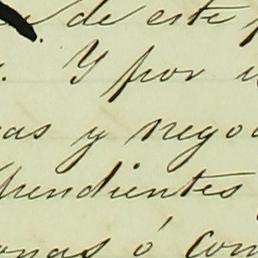 de este
Y por
as y nego
pendientes
onas ó com